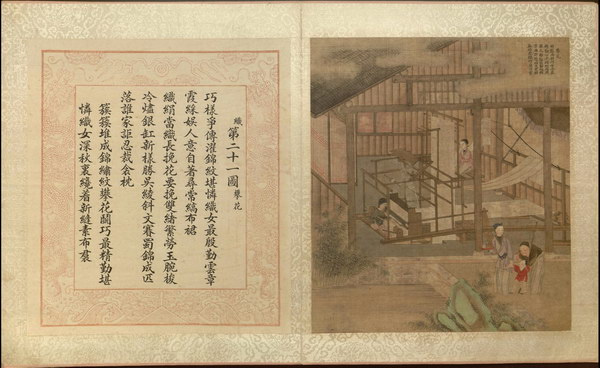 織 第二十一圖 攀花
巧樣爭傳濯錦紋堪憐織女最殷勤雲章
霞綵娛人意自著尋常縞布裙
織絹當織長挽花要挽雙緒繁勞玉腕梭
冷燼銀缸新樣勝吳綾斜文賽蜀錦成匹
落誰家詎忍裁衾枕
簇簇堆成錦繡紋攀花鬭巧最精勤堪
憐織女深秋裏纔着新縫素布裠